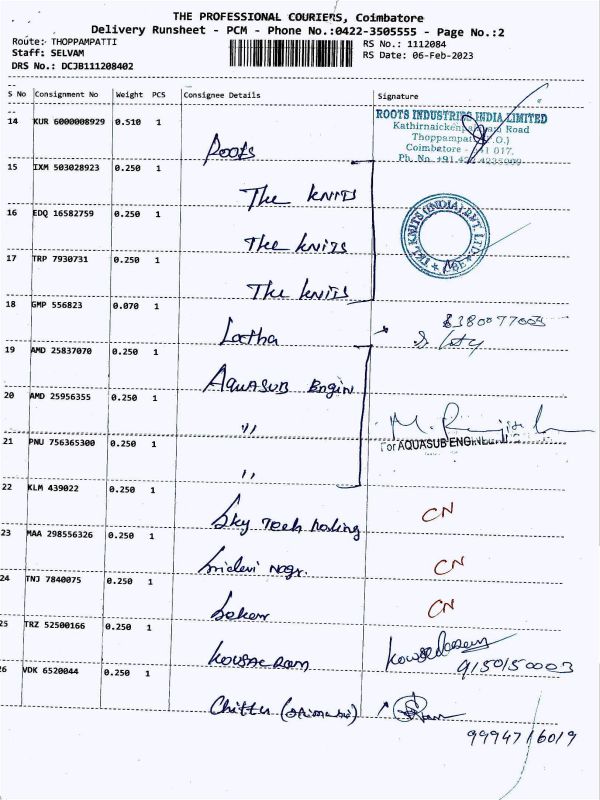 THE PROFESSIONAL COURIERS, Coimbatore
Delivery Runsheet - PCM - Phone No.:0422-3505555 - Page No.:2
Route: THOPPAMPATTI
RS No.: 1112084
Staff: SELVAM
RS Date: 06-Feb-2023
DRS No.: DCJB111208402
S No Consignment No Weight PCS Consignee Details Signature
14 KUR 6000008929 0.510 1
Roots
ROOTS INDUSTRIES INDIA LIMITED
Road
Coimbatore
15 IXM 503028923 0.250 1
The KNITS
16 EDQ 16582759 0.250 1
The KNITS
17 TRP 7930731 0.250 1
The KNITS
KNITS (INDIA) PVT. LTD.
18 GMP 556823 0.070 1
19 AMD 25837070 0.250 1
AQUASUB Engin
20 AMD 25956355 0.250 1
"
21 PNU 756365300 0.250 1
"
For AQUASUB
22 KLM 439022 0.250 1
Sky Tech
CN
23 MAA 298556326 0.250 1
Sridevi Nagr.
CN
24 TNJ 7840075 0.250 1
CN
25 TRZ 52500166 0.250 1
9150150003
26 VDK 6520044 0.250 1
9994716019